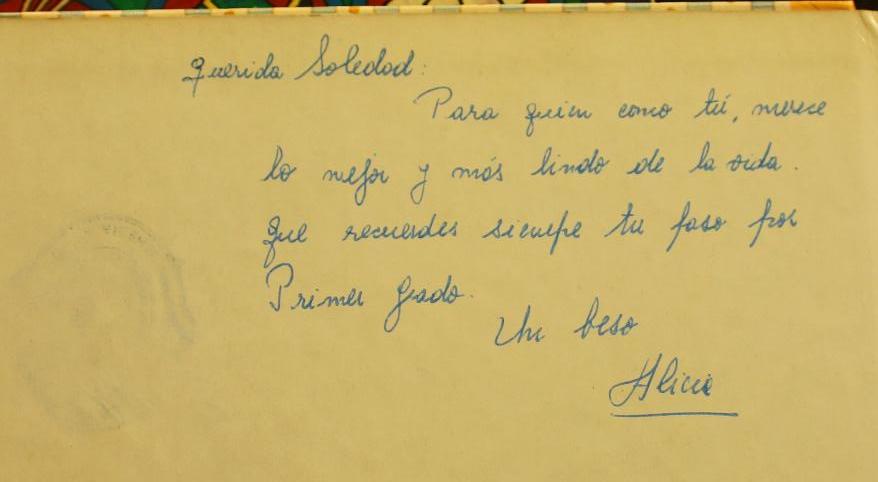 Querida Soledad:
Para quien como tú, merece
lo mejor y más lindo de la vida.
Que recuerdes siempre tu paso por
Primer grado.
Un beso
Alicia